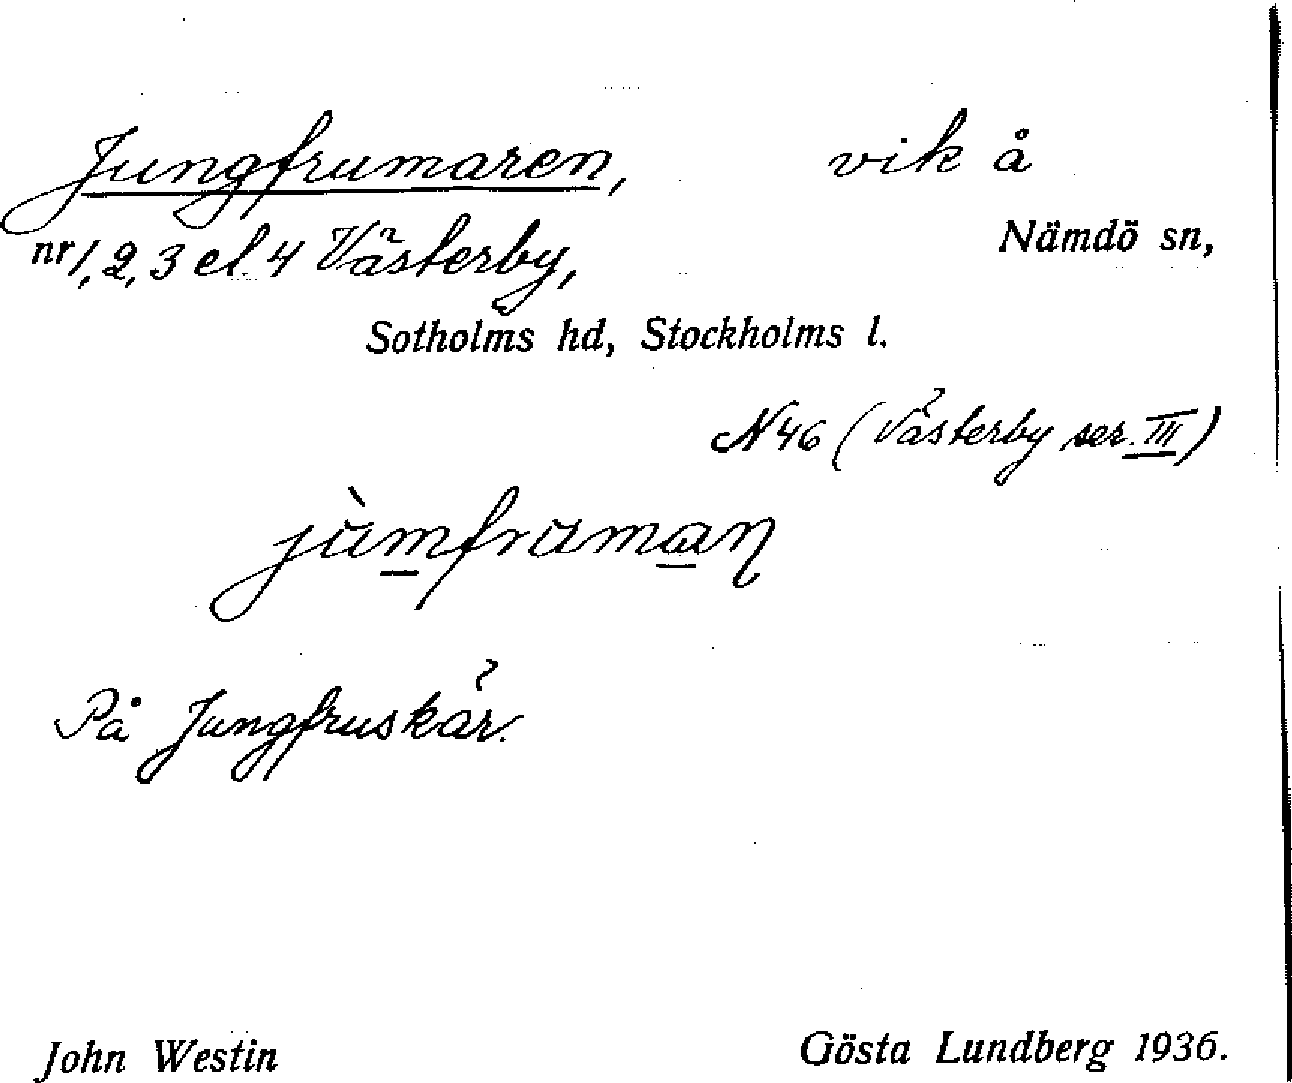 Jungfrumaren, vik å
nr 1, 2, 3 el. 4 Västerby, Nämdö sn,
Sotholms hd, Stockholms l.
N 46 (Västerby ser. III)
jùmfrumaɳ
På Jungfruskär.
John Westin Gösta Lundberg 1936.